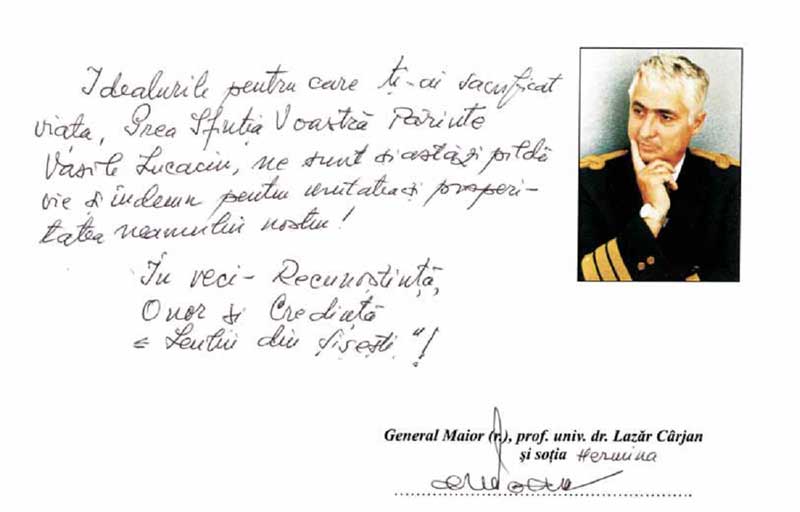 Idealurile pentru care ți-ai sacrificat
viața, Prea Sfinția Voastră Părinte
Vasile Lucaciu, ne sunt și astăzi pildă
vie și îndemn pentru unitatea și prosperi-
tatea neamului nostru!
În veci - Recunoștință,
Onor și Credință
„Leului din Șișești"!
General Maior (r.), prof. univ. dr. Lazăr Cârjan
și soția Hermina